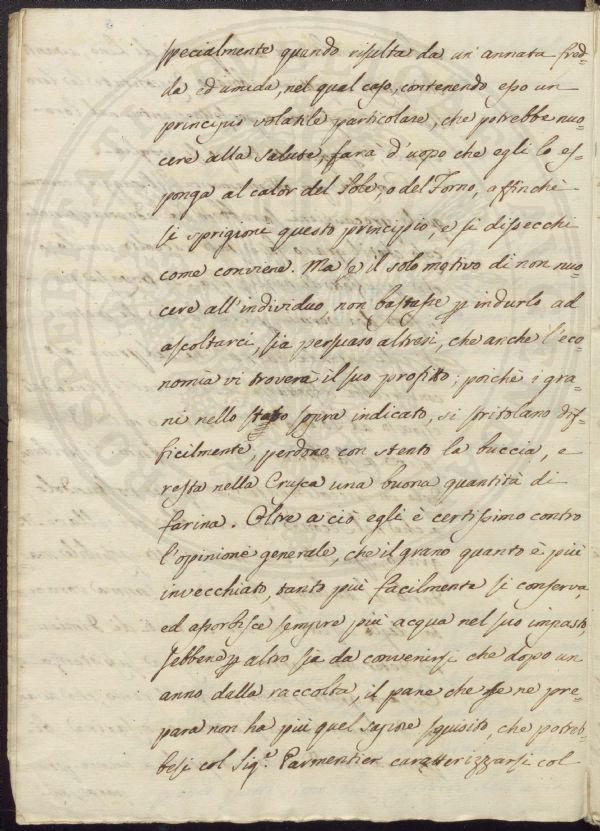 specialmente quando risulta da un'annata fred-
da ed umida, nel qual caso, contenendo esso un
principio volatile particolare, che potrebbe nuo-
cere alla salute, farà d'uopo che egli lo es-
ponga al calor del Sole, o del Forno, affinchè
si sprigioni questo principio, e si dissecchi
come conviene. Ma se il solo motivo di non nuo-
cere all'individuo, non bastasse p indurlo ad
ascoltarci, sia persuaso altresì, che anche l'eco-
nomia vi troverà il suo profitto; poichè i gra-
ni nello stato sopra indicato, si stritolano dif-
ficilmente, perdono con stento la buccia, e
resta nella Crusca una buona quantità di
farina. Oltre a ciò egli è certissimo contro
l'opinione generale, che il grano quanto è più
invecchiato, tanto più facilmente si conserva,
ed assorbisce sempre più acqua nel suo impasto,
sebbene p altro sia da convenirsi che dopo un
anno dalla raccolta, il pane che se ne pre-
para non ha più quel sapore squisito, che potreb-
besi col Sig.e Parmentier caratterizzarsi col